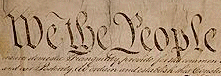 We the People
insure domestic Tranquility, provide for the common
and our Posterity, do ordain and establish this Const